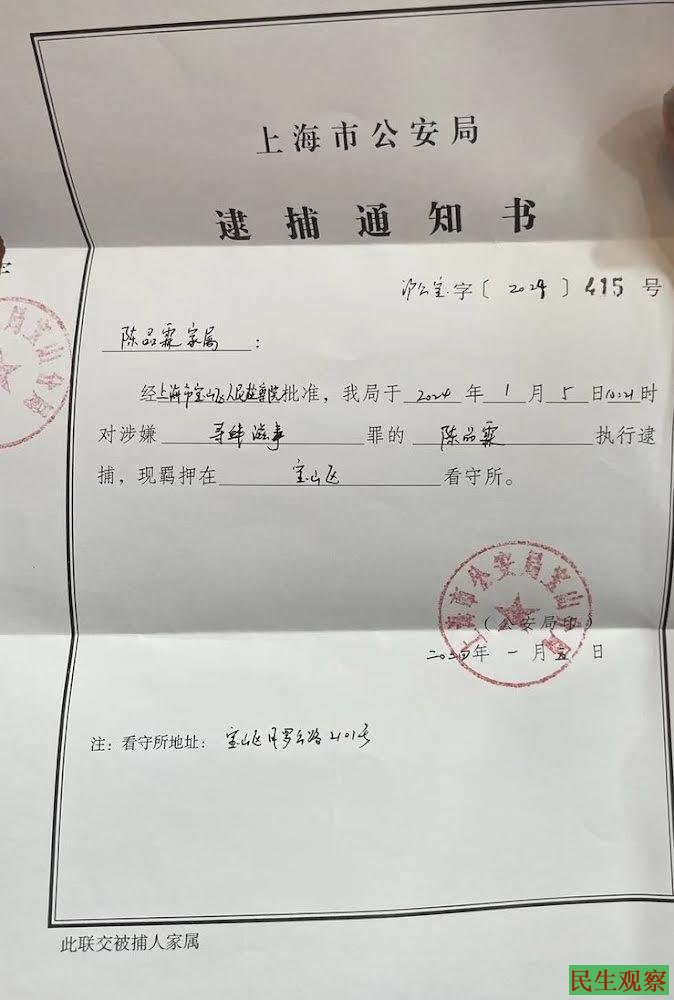 上海市公安局
逮捕通知书
沪公宝字〔2024〕415号
陈品霖家属:
经上海市宝山区人民检察院批准,我局于2024年1月5日10:21时
对涉嫌寻衅滋事罪的陈品霖执行逮
捕,现羁押在宝山区看守所。
上海市公安局宝山分局
(公安局印)
二〇二四年一月五日
注:看守所地址:宝山区月罗公路2101号
此联交被捕人家属
民生观察